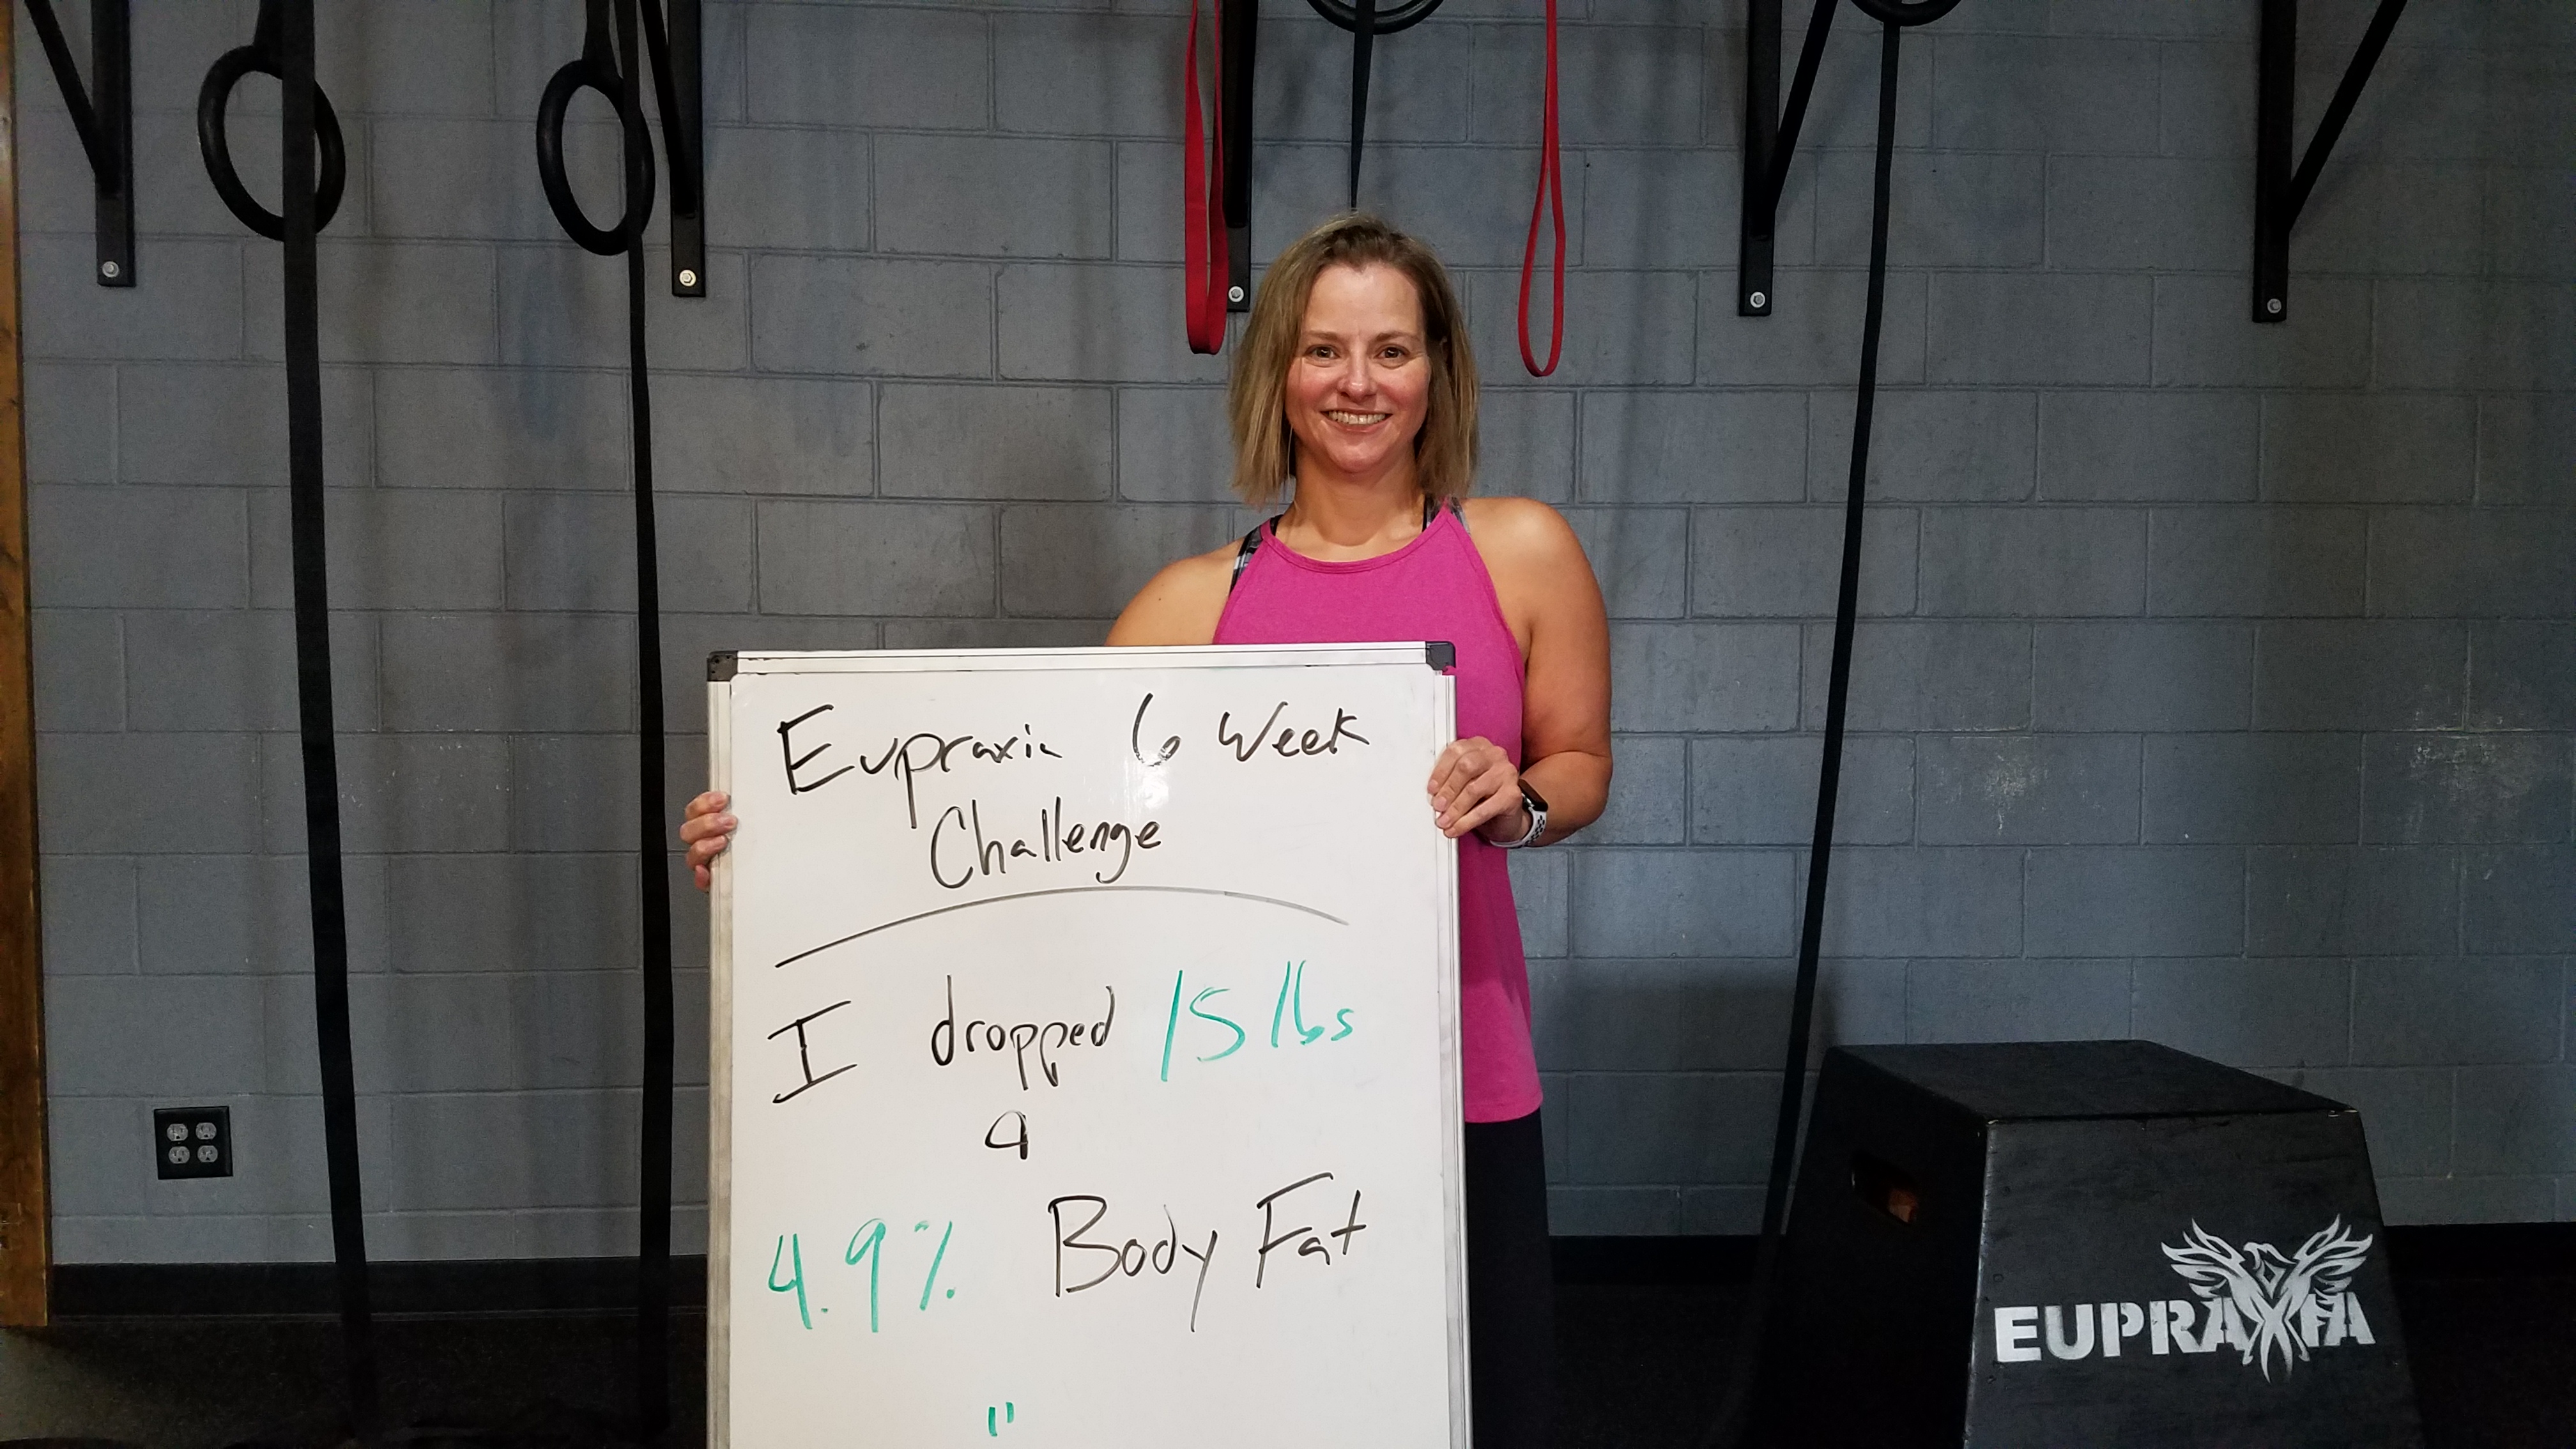 Eupraxia 6 Week
Challenge
I dropped 15 lbs
&
4.9% Body Fat
"
EUPRAXIA